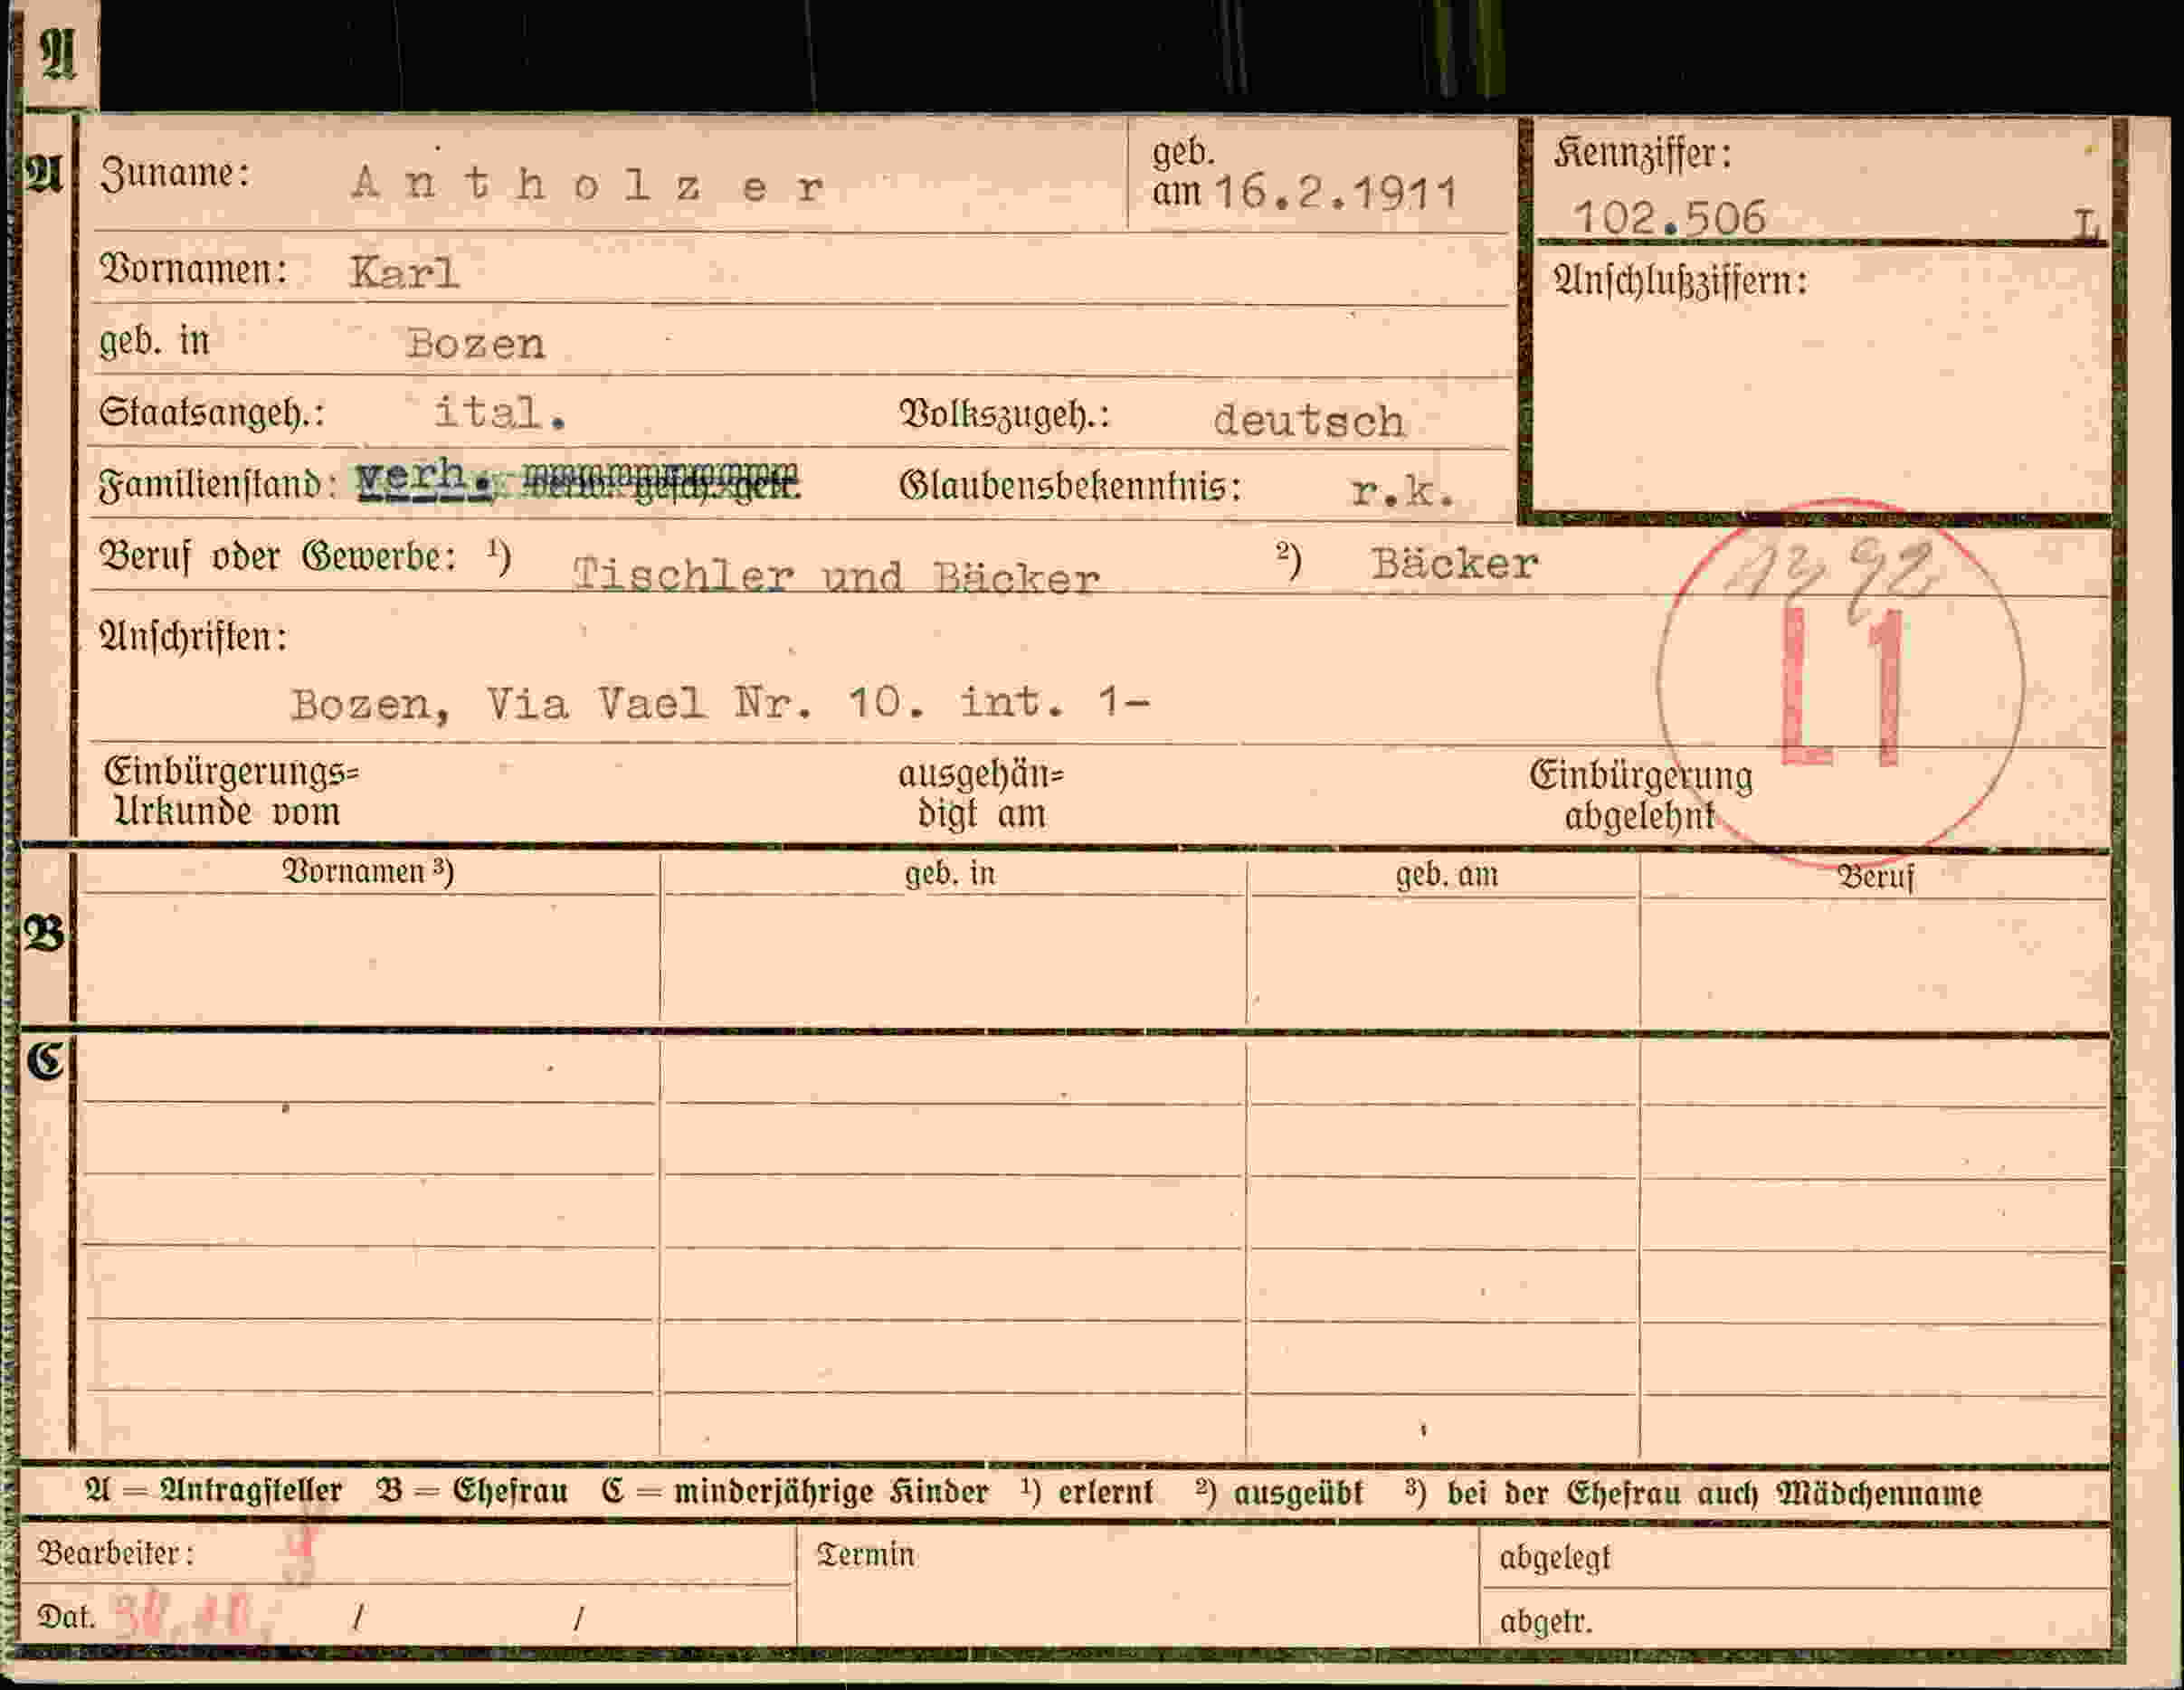 A
A
Zuname: Antholzer
geb. am 16.2.1911
Kennziffer: 102.506 L
Vornamen: Karl
Anschlußziffern:
geb. in Bozen
Staatsangeh.: ital. Volkszugeh.: deutsch
Familienstand: verh. Glaubensbekenntnis: r.k.
Beruf oder Gewerbe: ¹) Tischler und Bäcker ²) Bäcker
L1
Anschriften:
Bozen, Via Vael Nr. 10. int. 1-
Einbürgerungs= ausgehän= Einbürgerung
Urkunde vom digt am abgelehnt
B
Vornamen ³) geb. in geb. am Beruf
C
A = Antragsteller B = Ehefrau C = minderjährige Kinder ¹) erlernt ²) ausgeübt ³) bei der Ehefrau auch Mädchenname
Bearbeiter: Termin abgelegt
Dat. / / abgetr.